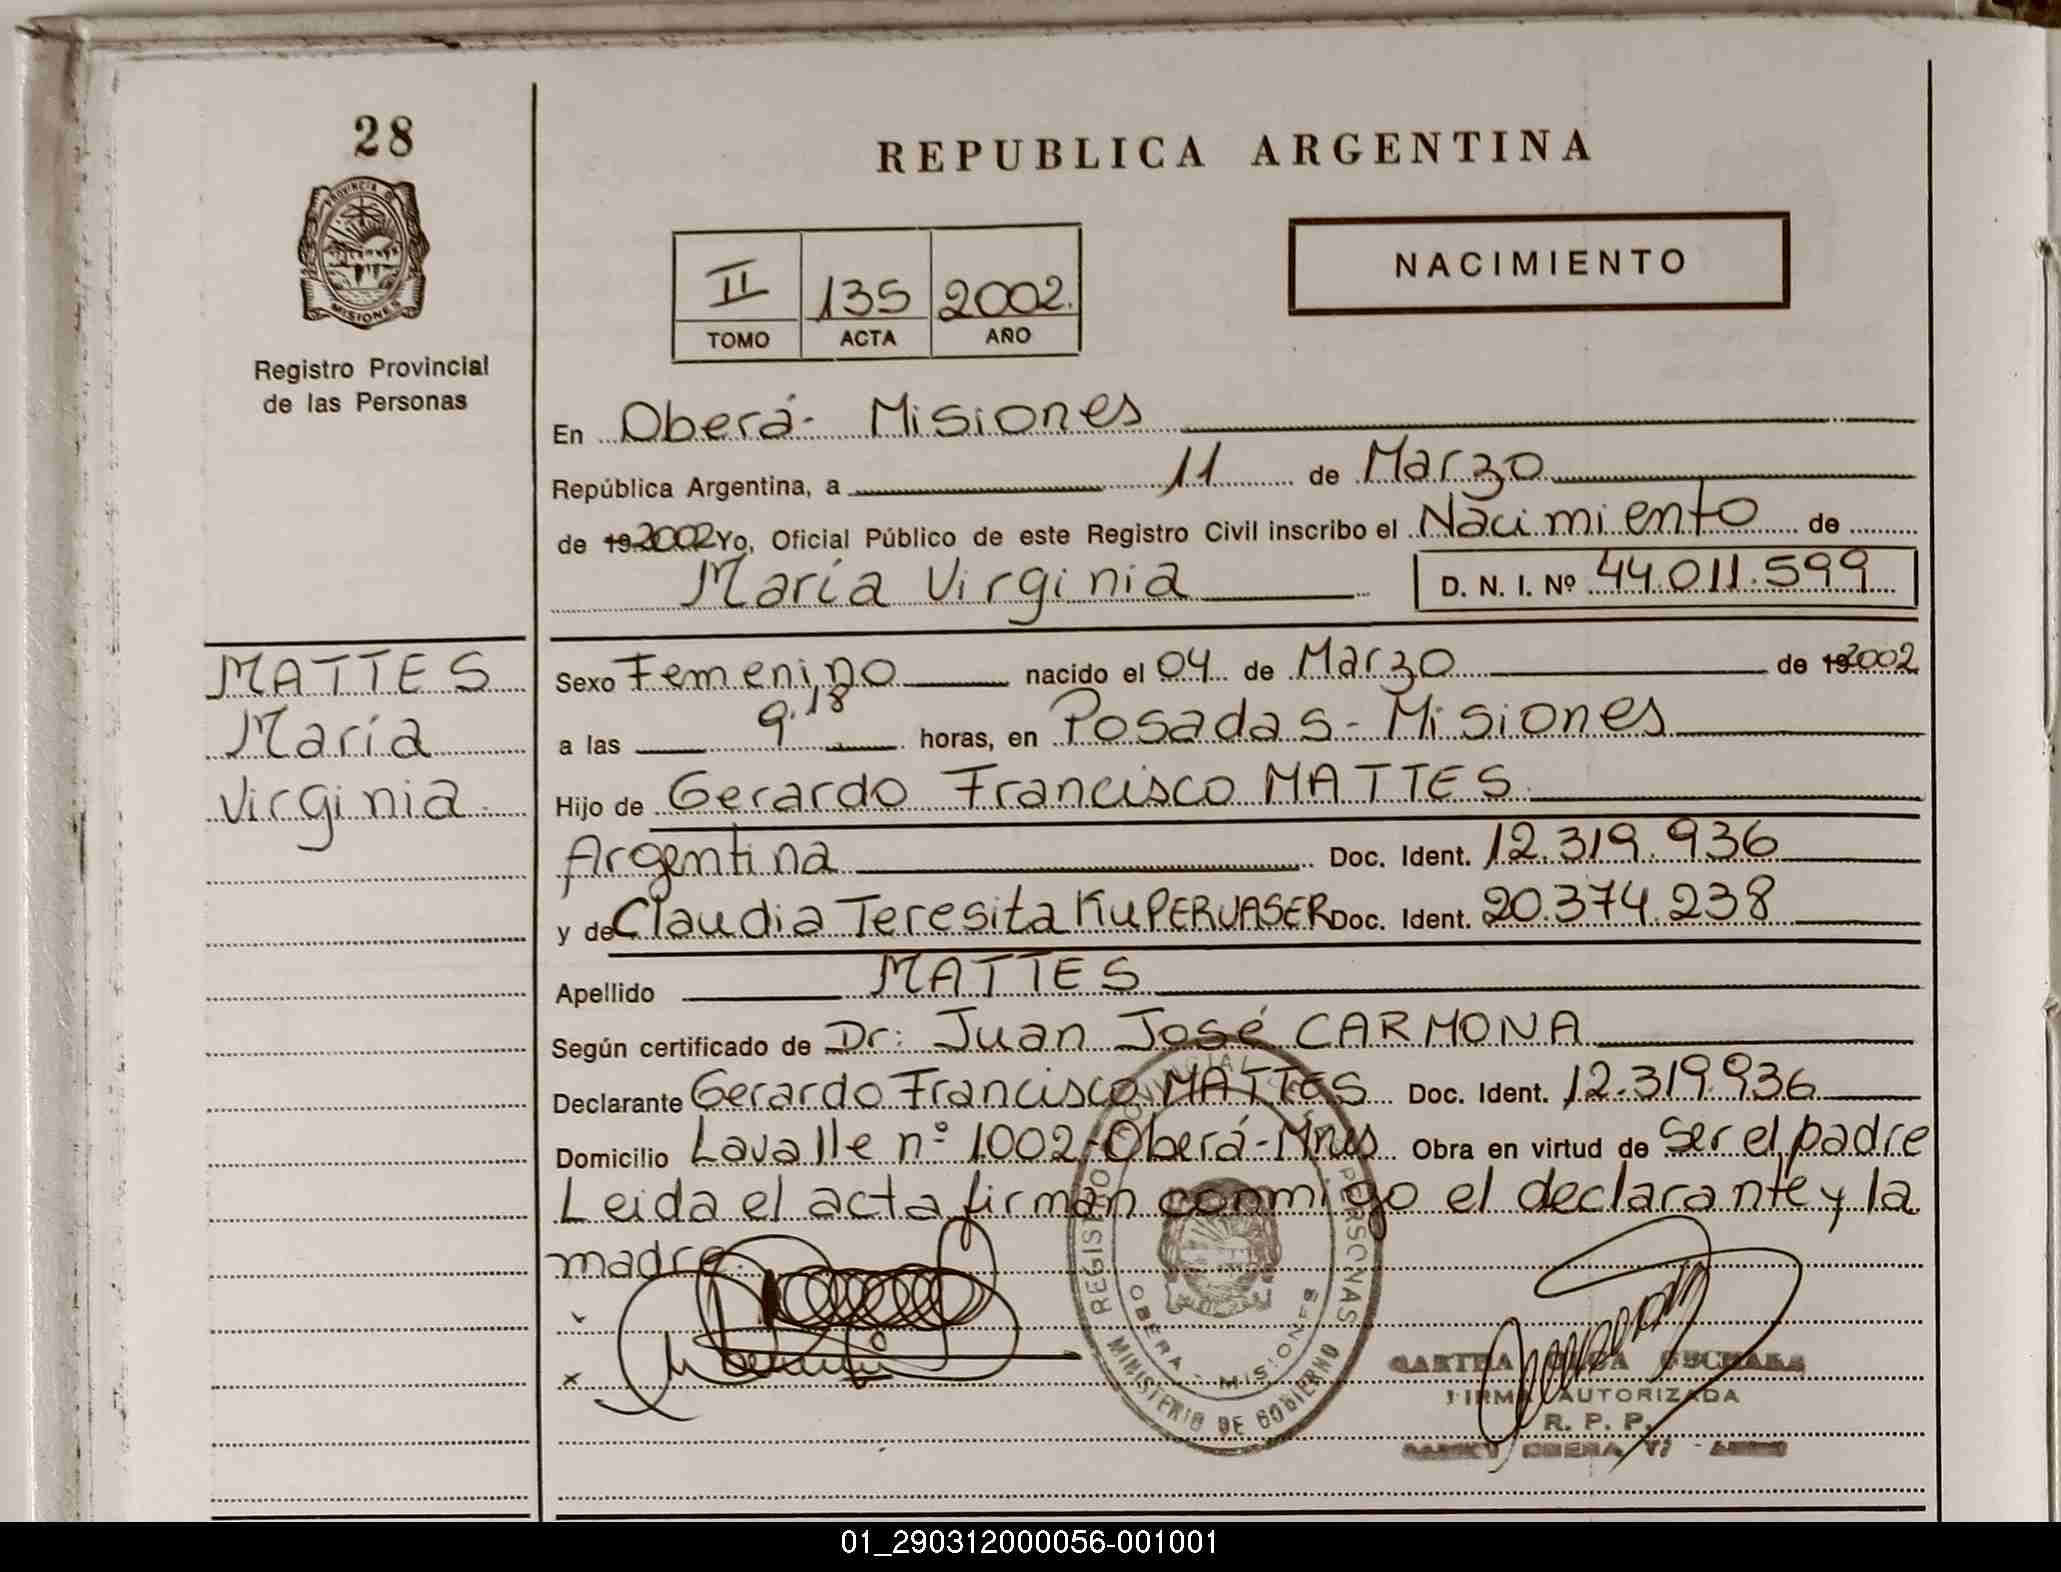 28
PROVINCIA DE
MISIONES
Registro Provincial
de las Personas
REPUBLICA ARGENTINA
II 135 2002.
TOMO ACTA AÑO
NACIMIENTO
En Oberá- Misiones
República Argentina, a 11 de Marzo
de 192002 Yo, Oficial Público de este Registro Civil inscribo el Nacimiento de
María Virginia D. N. I. Nº 44.011.599
MATTES
María
Virginia
Sexo Femenino nacido el 04 de Marzo de 192002
a las 9.18 horas, en Posadas - Misiones
Hijo de Gerardo Francisco MATTES
Argentina Doc. Ident. 12.319.936
y de Claudia Teresita KuPERVASER Doc. Ident. 20.374.238
Apellido MATTES
Según certificado de Dr: Juan José CARMONA
Declarante Gerardo Francisco MATTES Doc. Ident. 12.319.936
Domicilio Lavalle nº 1002-Oberá-Mnes Obra en virtud de Ser el padre
Leida el acta firman conmigo el declarante y la
madre.
REGISTRO PROVINCIAL PERSONAS
MINISTERIO DE GOBIERNO
OBERA - MISIONES
FIRMA AUTORIZADA
R. P. P.
OBERA
01_290312000056-001001